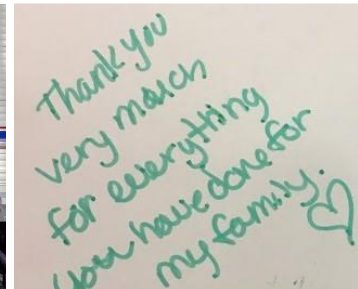 Thank you
very much
for everything
you have done for
my family. ♡